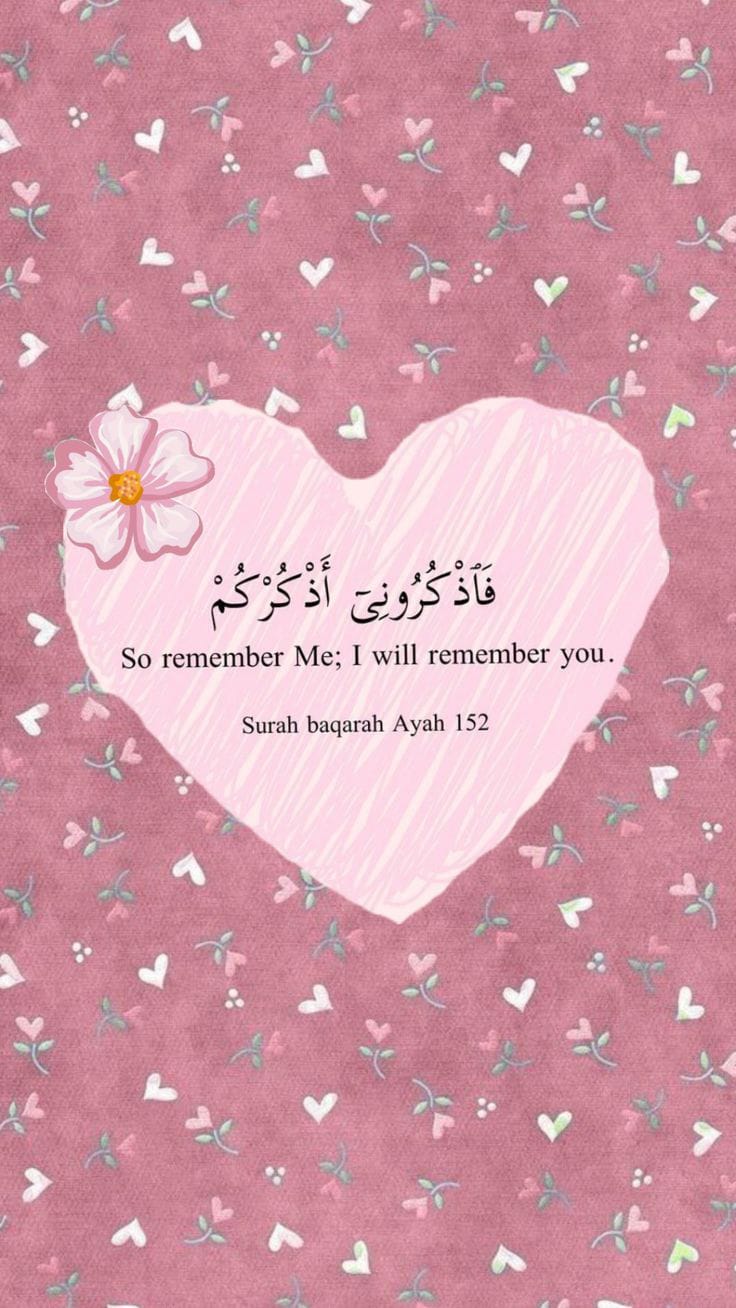 فَٱذْكُرُونِىٓ أَذْكُرْكُمْ
So remember Me; I will remember you.
Surah baqarah Ayah 152